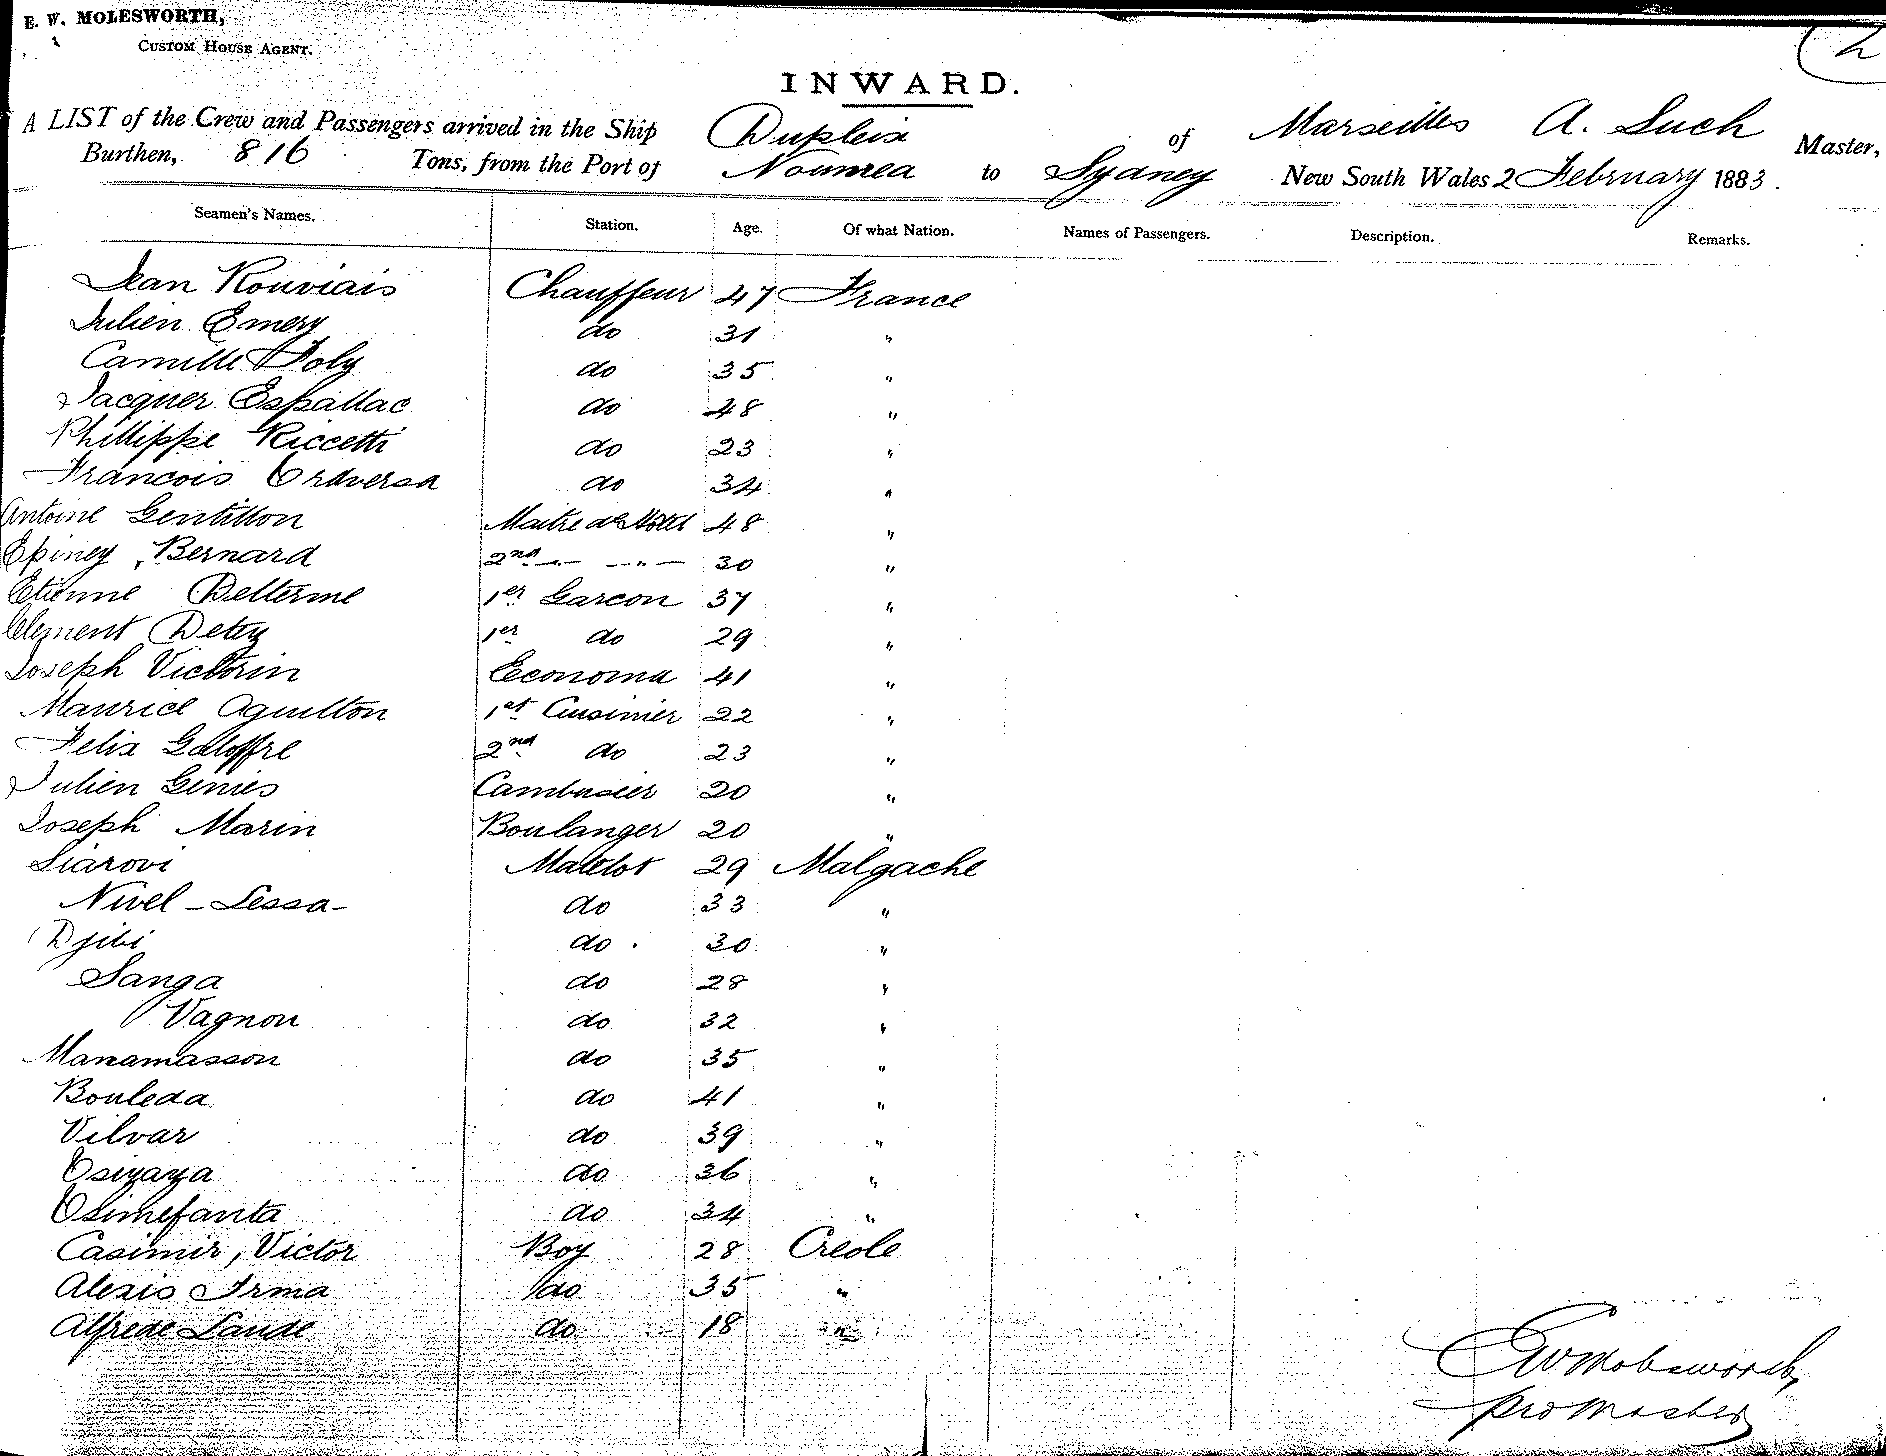 E. W. MOLESWORTH,
CUSTOM HOUSE AGENT.
2
INWARD.
A LIST of the Crew and Passengers arrived in the Ship Dupleix of Marseilles A. Such Master,
Burthen, 816 Tons, from the Port of Noumea to Sydney New South Wales 2 February 1883.
Seamen's Names. Station. Age. Of what Nation. Names of Passengers. Description. Remarks.
Jean Rouviais Chauffeur 47 France
Julien Emery do 31 "
Camille Joly do 35 "
Jacques Espallac do 48 "
Phillippe Riccetti do 23 "
Francois Traversa do 34 "
Antoine Gentillon Maitre de Hotel 48 "
Epiney, Bernard 2nd — " — 30 "
Etienne Delterme 1er Garcon 37 "
Clement Detey 1er do 29 "
Joseph Victorin Economa 41 "
Maurice Aguillon 1er Cuisinier 22 "
Felix Galoffre 2nd do 23 "
Julien Genies Cambusier 20 "
Joseph Marin Boulanger 20 "
Siarovi Matelot 29 Malgache
Nivel - Lessa - do 33 "
Djibi do 30 "
Sanga do 28 "
Vagnon do 32 "
Manamasson do 35 "
Bouleda do 41 "
Vilvar do 39 "
Tsizaya do 36 "
Tsimefanta do 34 "
Casimir, Victor Boy 28 Creole
Alexis Irma do 35 "
Alfrede Laude do 18 "
EW Molesworth
pro Master